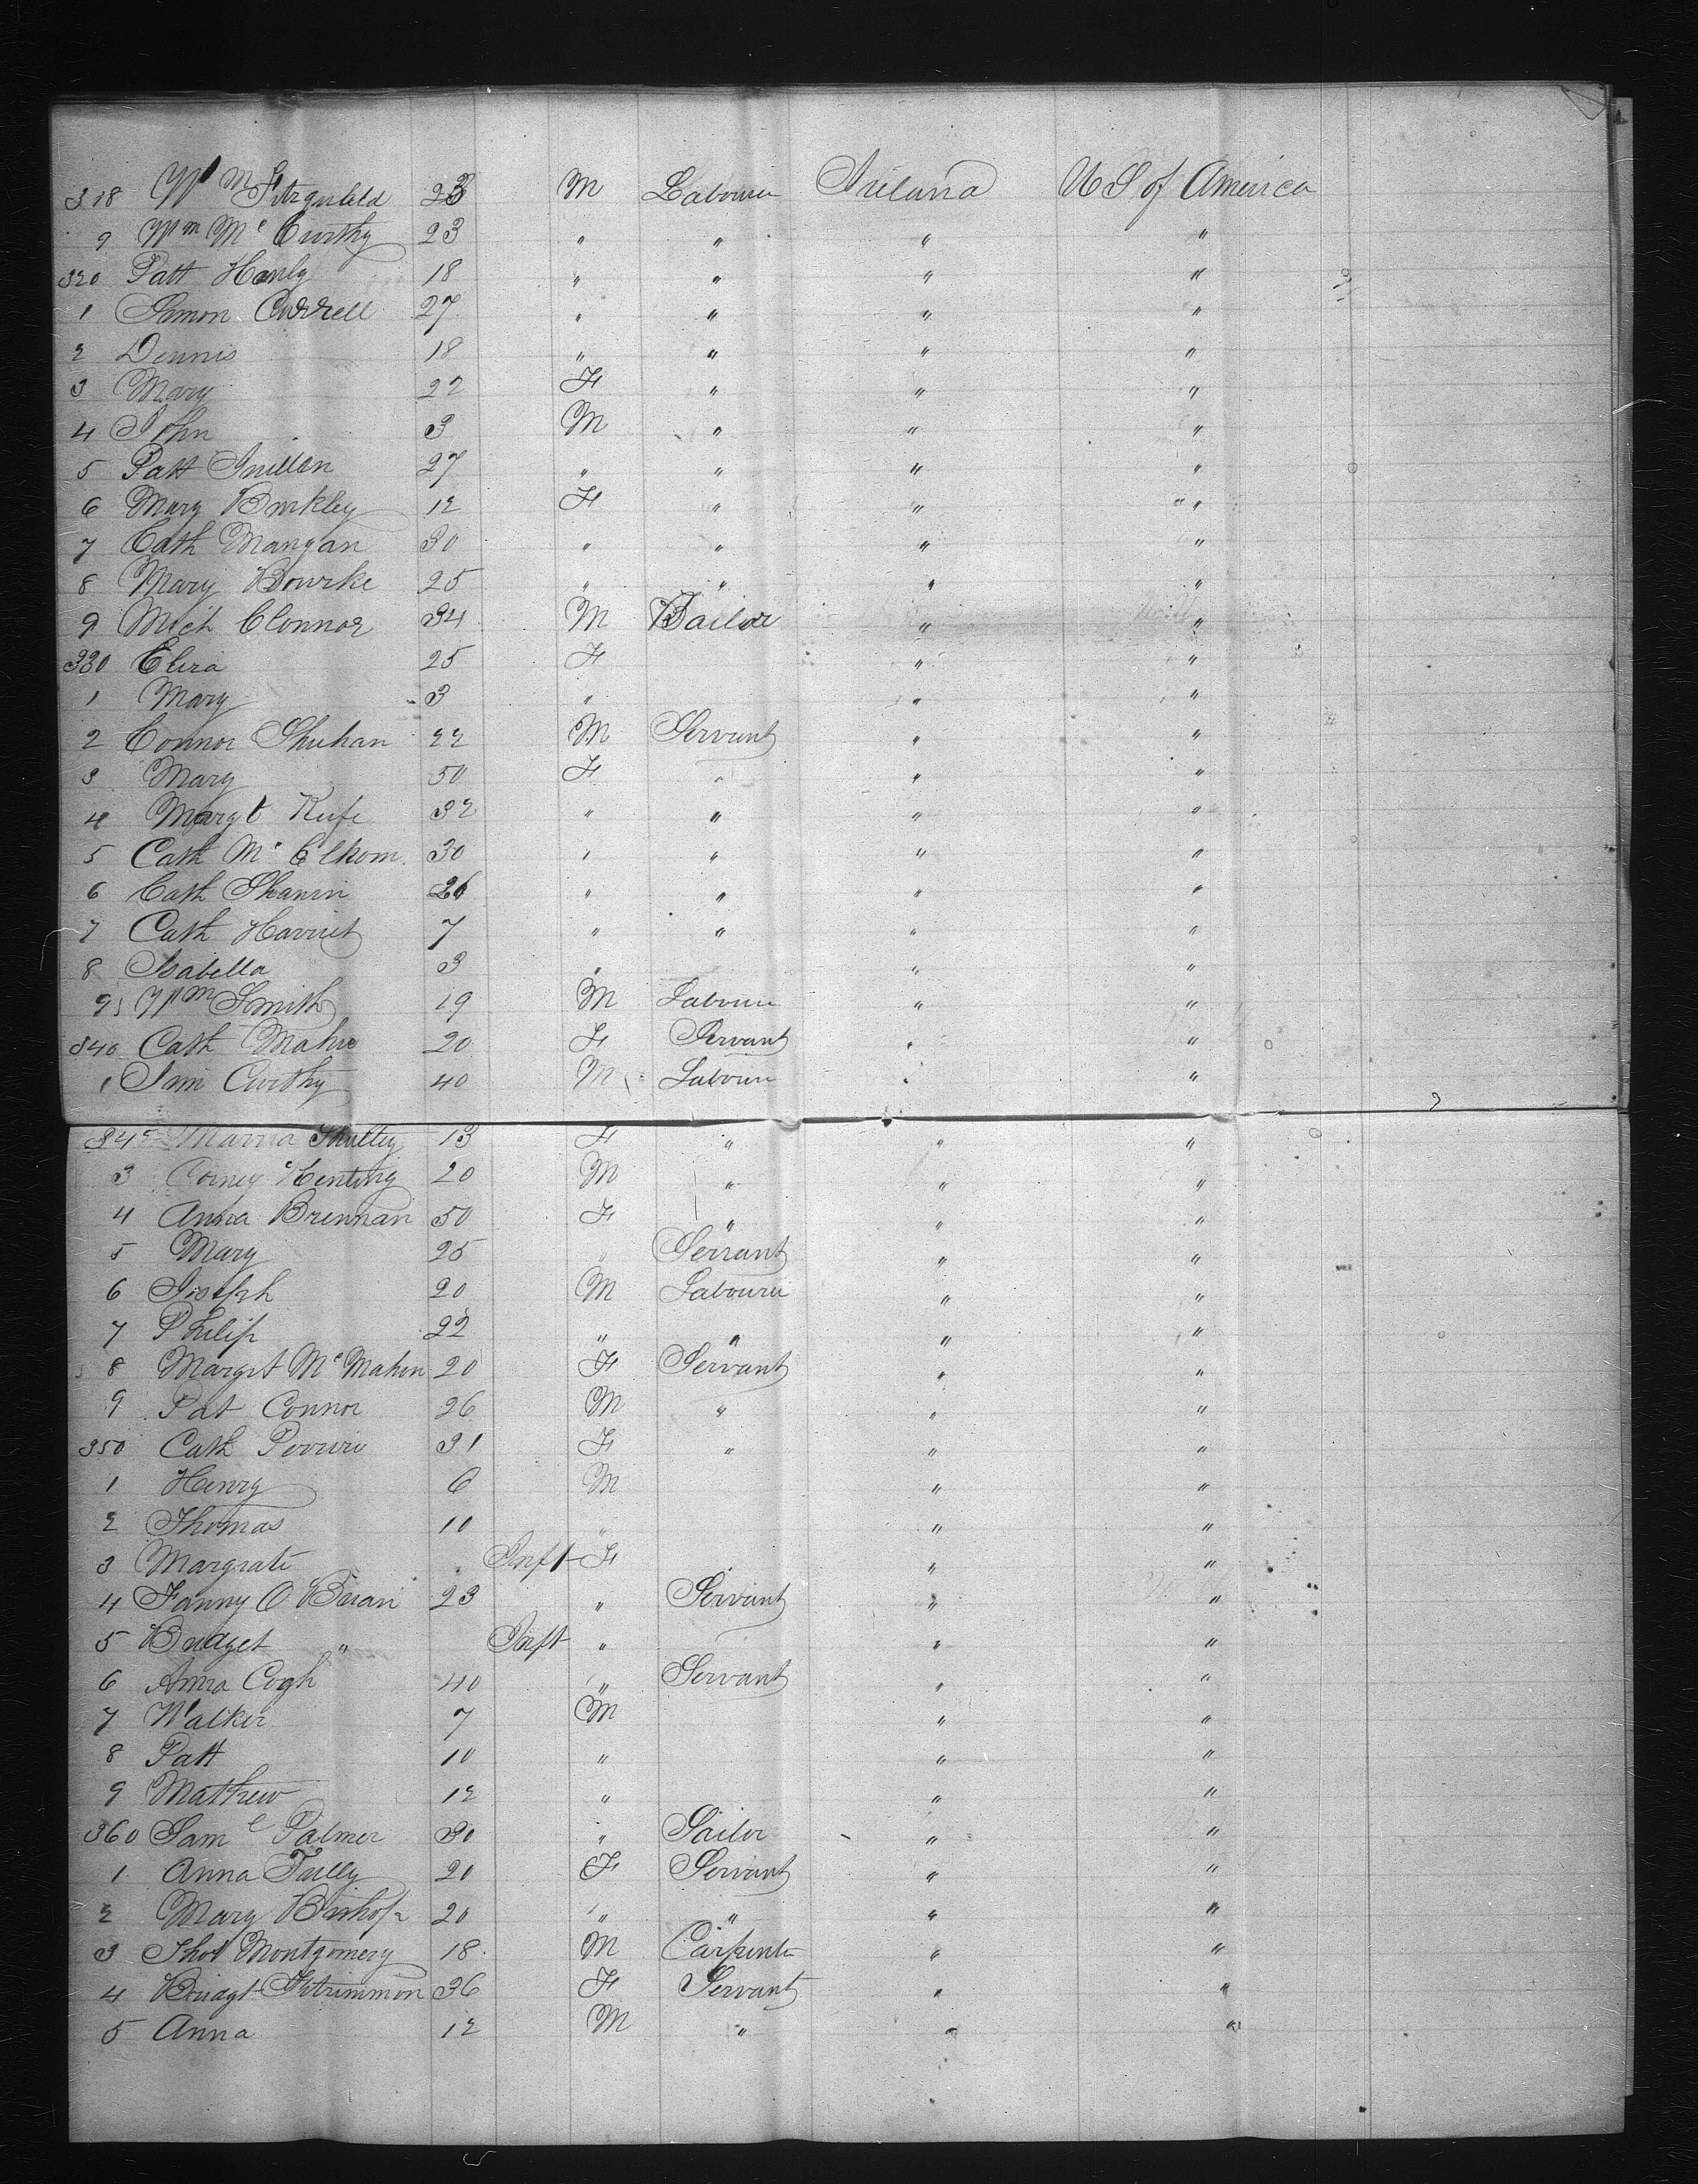 318 Wm Fitzgerald 23 M Labourer Ireland US of America
9 Wm Mc Curthy 23 " " " "
320 Patt Hanly 18 " " " "
1 Simon Correll 27 " " " "
2 Dennis 18 " " " "
3 Mary 22 F " " "
4 John 3 M " " "
5 Patt 27 " " " "
6 Mary Binkley 12 F " " "
7 Cath Mangan 30 " " " "
8 Mary Bourke 25 " " " "
9 Mich OConnor 34 M " "
330 Eliza 25 F " "
1 Mary 3 " " "
2 Connor Shehan 22 M Servant " "
3 Mary 50 F " " "
4 Margt Keife 32 " " " "
5 Cath Mc 30 " " " "
6 Cath 26 " " " "
7 Cath Harriet 7 " " " "
8 Isabella 3 " " "
9 Wm Smith 19 M Labourer " "
340 Cath Maher 20 F Servant " "
1 Curthy 40 M Labourer " "
342 13 F " " "
3 Corney 20 M " " "
4 Anna Brennan 50 F " " "
5 Mary 25 " Servant " "
6 Joseph 20 M Labourer " "
7 Philip 22 " " " "
8 Margrt Mc Mahon 20 F Servant " "
9 Pat Connor 26 M " " "
350 Cath 31 F " " "
1 Henry 6 M " "
2 Thomas 10 " " "
3 Margrate Inft F " "
4 Fanny O Brian 23 " Servant " "
5 Bridget " Inft " " "
6 Anna Cogh 40 " Servant " "
7 Walker 7 M " "
8 Patt 10 " " "
9 Mathew 12 " " "
360 Saml Palmer 30 " Sailor " "
1 Anna Tully 20 F Servant " "
2 Mary Bishop 20 " " " "
3 Thos Montgomery 18 M Carpenter " "
4 Bridgt Fitzsimmon 36 F Servant " "
5 Anna 12 M " " "